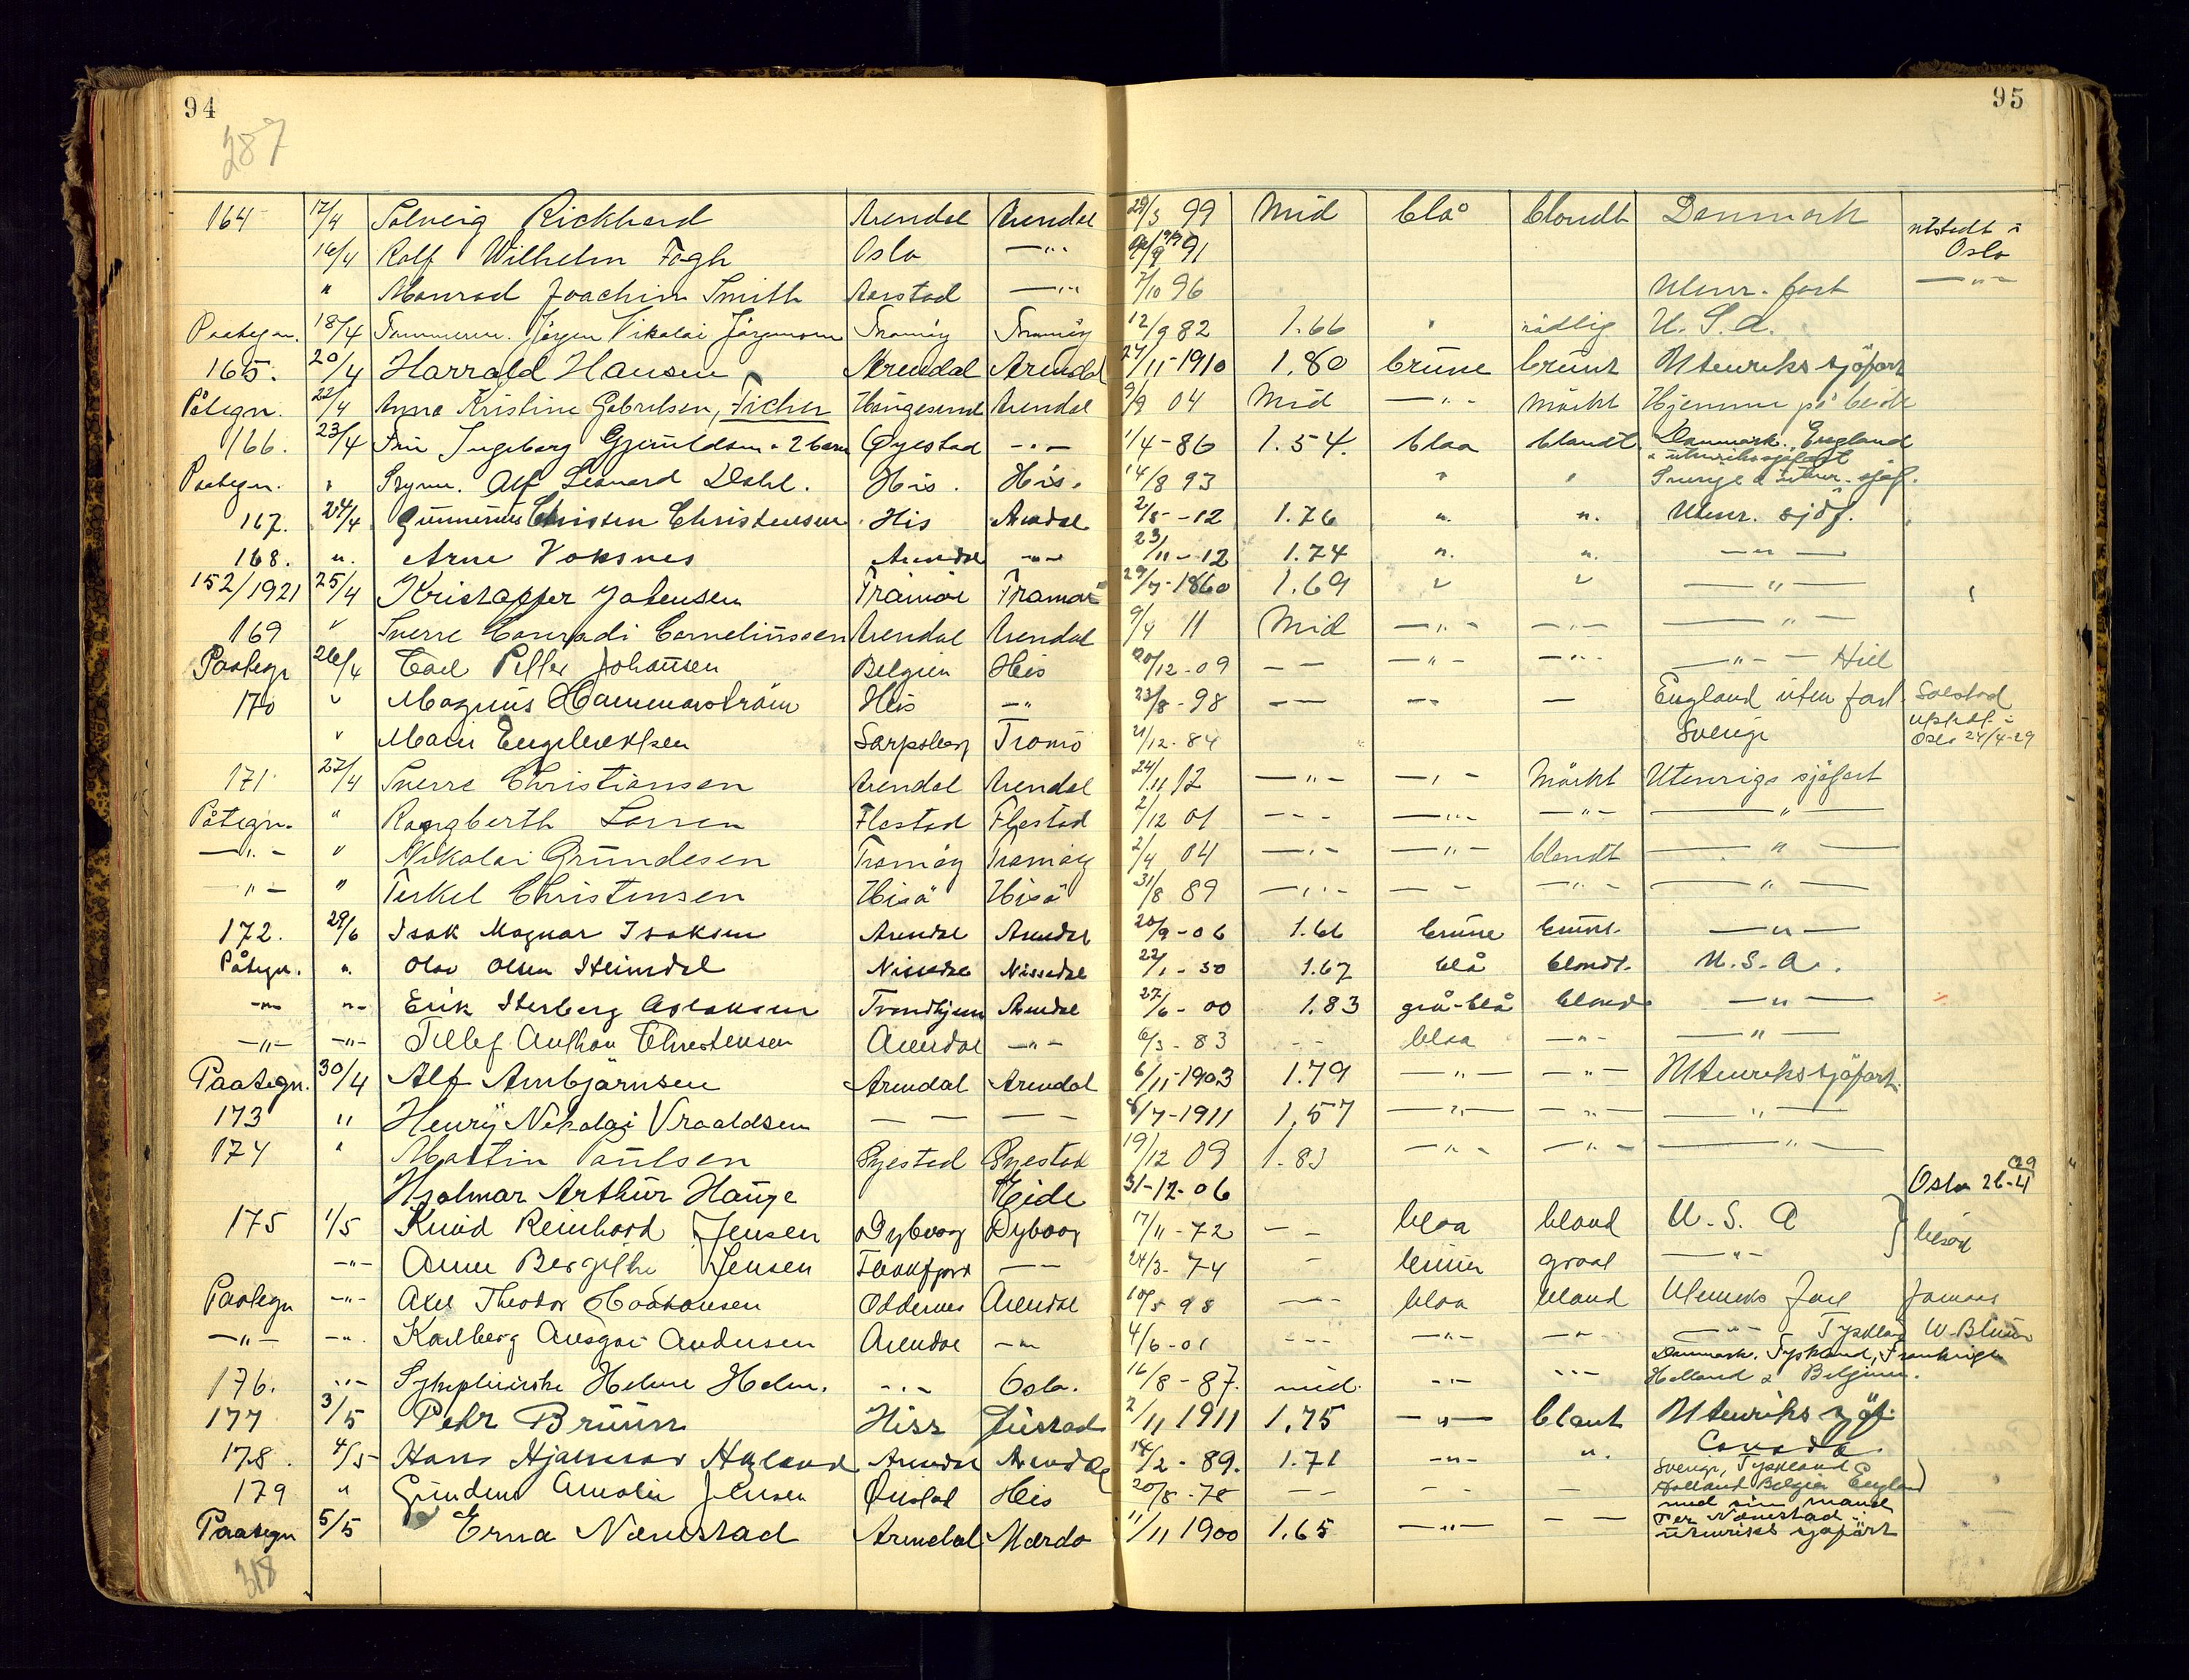 94
95
287
164 17/4 Solveig Rickhard Arendal Arendal 29/3 99 Mid blå blondt Danmark utstedt i
16/4 Rolf Wilhelm Fogh Oslo —"— 91 Oslo
" Monrad Joachim Smith Aarstad —"— 7/10 96 Utenr. fart —"—
Paategn. 18/4 Tømmerm. Jörgen Nikolai Jörgensen Tromöy Tromöy 12/9 82 1.66 " rödlig U.S.A.
165. 20/4 Harrald Hansen Arendal Arendal 27/11-1910 1.80 brune brunt Utenriks sjöfart
Påtegn. 22/4 Anna Kristine Gabrielsen, Ficher Haugesund Arendal 9/9 04 Mid —"— mörkt Hjemme på besök
166. 23/4 Fru Ingeborg Gjeruldsen + 2 barn Øyestad —"— 1/4-86 1.54. blaa blandt Danmark. England
& utenrikssjøfart
Paategn. " Styrm. Alf Leonard Dahl. His. His. 14/8 93 " " Sverige & utenr. sjøf.
167. 24/4 Gunnerius Christen Christensen His Arendal 2/5-12 1.76 ". ". Utenr. sjöf.
168. ". Arne Voksnes Arendal —"— 23/11-12 1.74 ". ". —"—
152/1921 25/4 Kristoffer Johensen Tromöe Tromöe 29/7-1860 1.69 " " —"—
169 " Sverre Conradi Corneliussen Arendal Arendal 9/4 11 Mid —"— —"— —"—
Paategn 26/4 Carl Peffer Johansen Belgien His 20/12-09 — — —"— —"— —"— Hill
170 " Magnus Hammarström His —" 23/8-98 — — — — — England uten fart
" Maren Engebretsen Sarpsborg Tromö 21/12-84 Sverige Oslo 24/4-29
171 27/4 Sverre Christiansen Arendal Arendal 24/11 12 —"— —"— Mörkt Utenrigs sjöfart
Påtegn. " Rangberth Larsen Flostad Flostad 2/12 01 — — — —"— —"— —"—
—"— " Nikolai Grundesen Tromöy Tromöy 2/4 04 —"— —"— blondt —"—
—"— " Terkel Christensen Hisö Hisö 31/8 89 —"— — — —"— —"—
172. 29/6 Isak Magnar Isaksen Arendal Arendal 20/9-06 1.66 brune brunt. —"—
Påtegn. ". Olav Olsen Heimdal Nissedal Nissedal 22/1-50 1.67 blå blondt. U.S.A.
—"— "— Erik Sterberg Aslaksen Trondhjem Arendal 27/6-00 1.83 grå-blå blond —"—
—"— —"— Tellef Anthon Christensen Arendal —"— 6/3-83 — — blaa —"— —"—
Paategn. 30/4 Alf Ambjörnsen Arendal Arendal 6/11-1903 1.79 —"— —"— Utenriks sjöfart.
173 " Henry Nikolai Vraaldsen — — — — 8/7-1911 1.57 —"— —"— —"—
174 " Martin Paulsen Øyestad Øyestad 19/12 09 1.83 —"— —"— —"—
Hjalmar Arthur Hauge Eide 31-12-06 Oslo 26-4 29
175 1/5 Knud Reinhard Jensen Dybvaag Dybvaag 17/11-72 — — blaa blond U.S.A besök
—"— Anne Bergithe Jensen — — 24/3-74 — brune graat —"—
Paategn —"— Axel Theodor Haakonsen Oddernes Arendal 10/5 98 — — blaa bland Utenriks Fart
—"— —"— Karlberg Ansgar Andersen Arendal —"— 4/6-01 — — — —"— —"— —"— Tyskland
176. —"— Sykepleierske Helene Holm. —"— Oslo. 16/8-87. mid. —"— —"— Danmark. Tyskland, Frankrige
Holland & Belgien.
177 3/5 Pehr Bruun Hiss Fuestad 2/11 1911 1,75 —"— blant Utenriks sjöf.
178. 4/5 Hans Hjalmar Hagland Arendal Arendal 14/2-89. 1.71 —"— ". Canada
179 " Gundem Amalie Jensen Öiestad His 20/8-78 — — — — — Sverige, Tyskland
Holland Belgien England
Paategn 5/5 Erna Næmestad Arendal Mærdo 11/11 1900 1.65 —"— — — med sin mand
Per Næmestad i
utenriks sjöfart
318